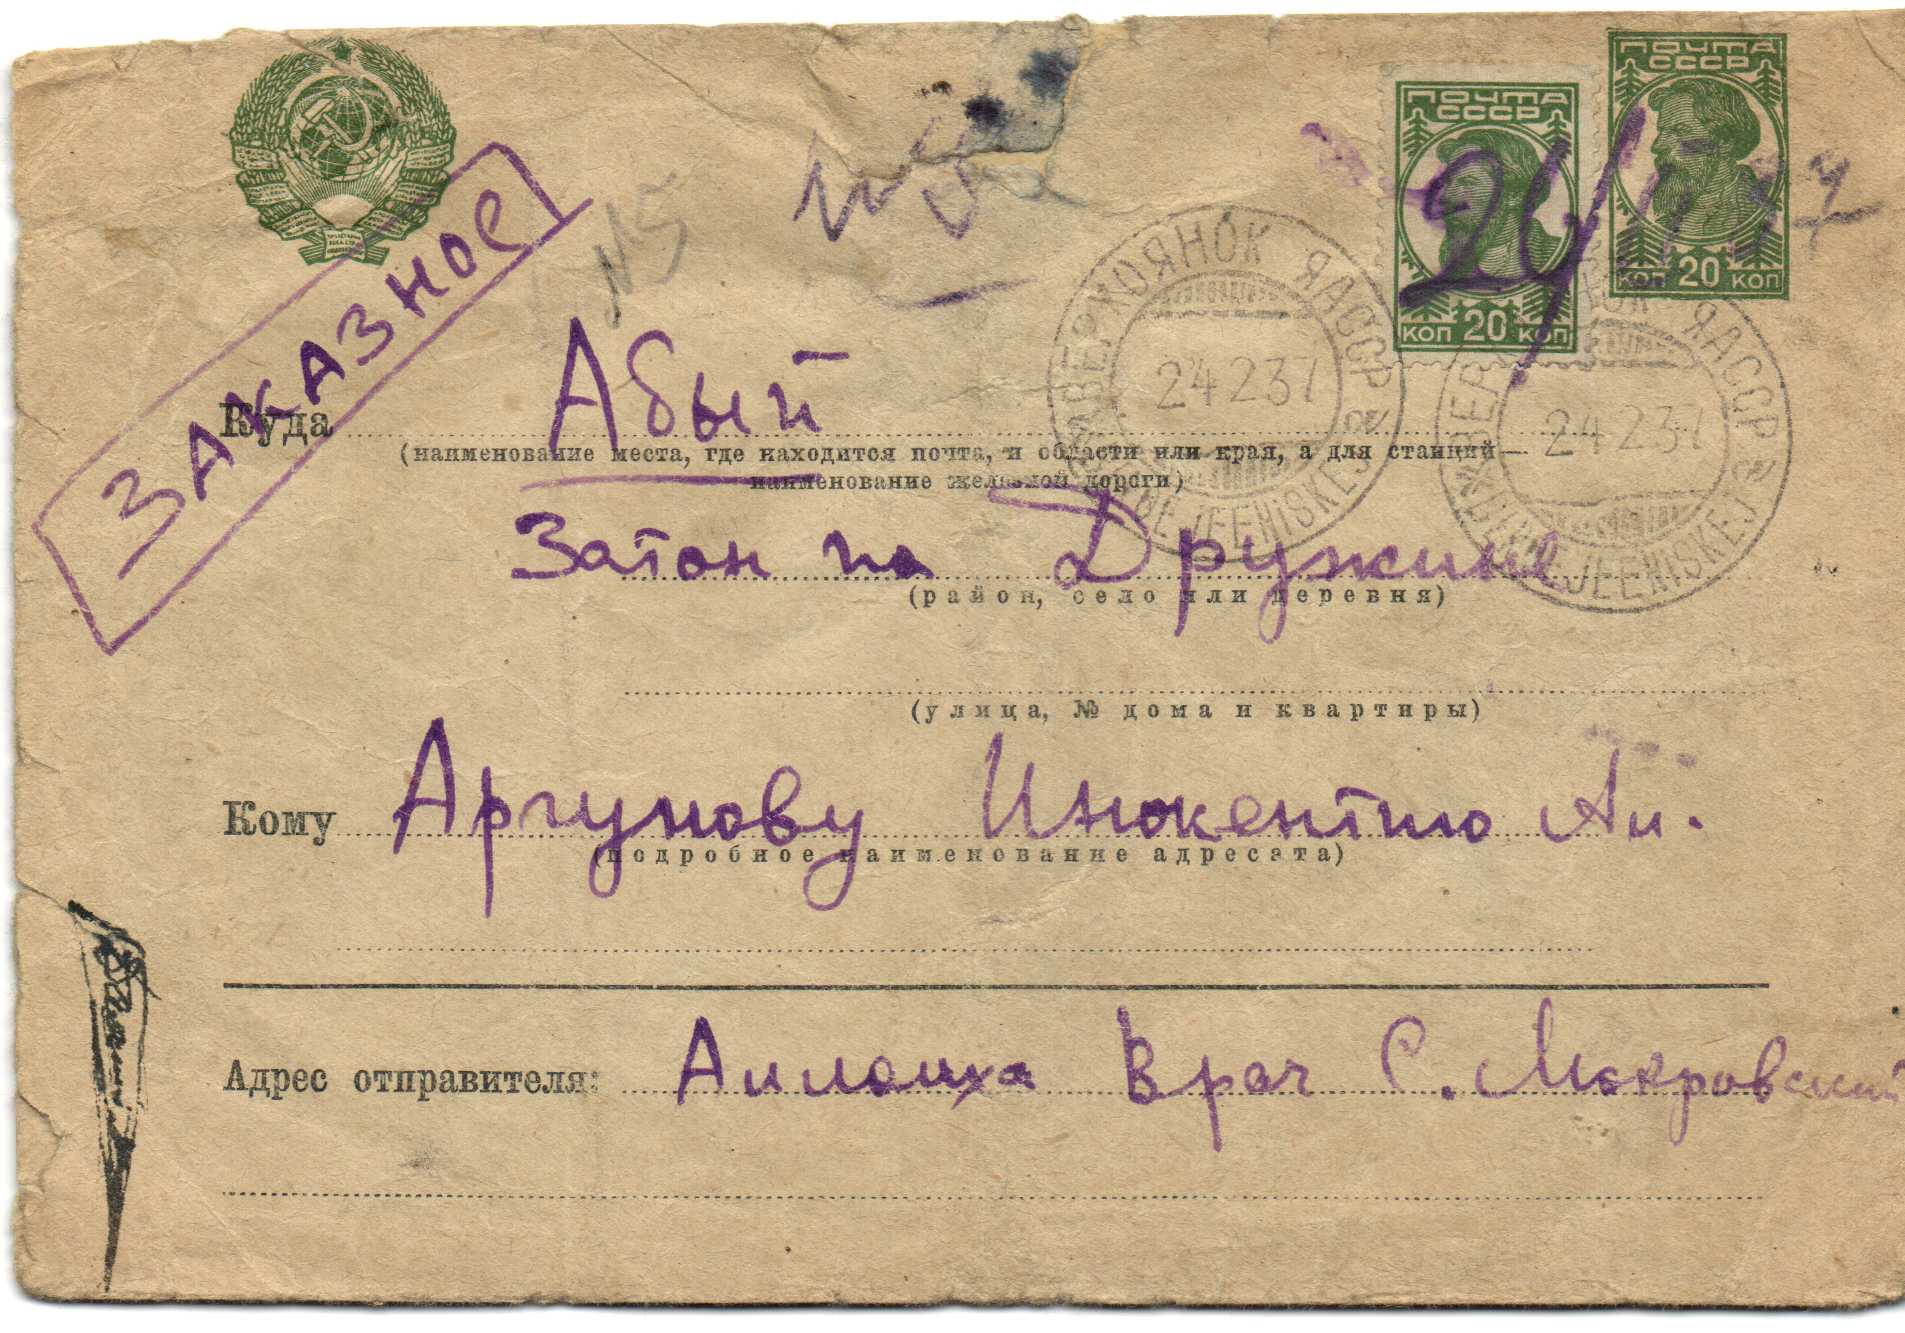 ПОЧТА
СССР
КОП 20 КОП
ПОЧТА
СССР
КОП 20 КОП
24/II 37
ЗАКАЗНОЕ
№5
ВЕРХОЯНСК ЯАССР
24 2 37
ЯАССР
24 2 37
Куда Абый
(наименование места, где находится почта, и области или края, а для станций—
наименование железной дороги)
Затон на Дружине
(район, село или деревня)
(улица, № дома и квартиры)
Кому Аргунову Инокентию Ан.
(подробное наименование адресата)
Адрес отправителя: Врач С. Мокровский